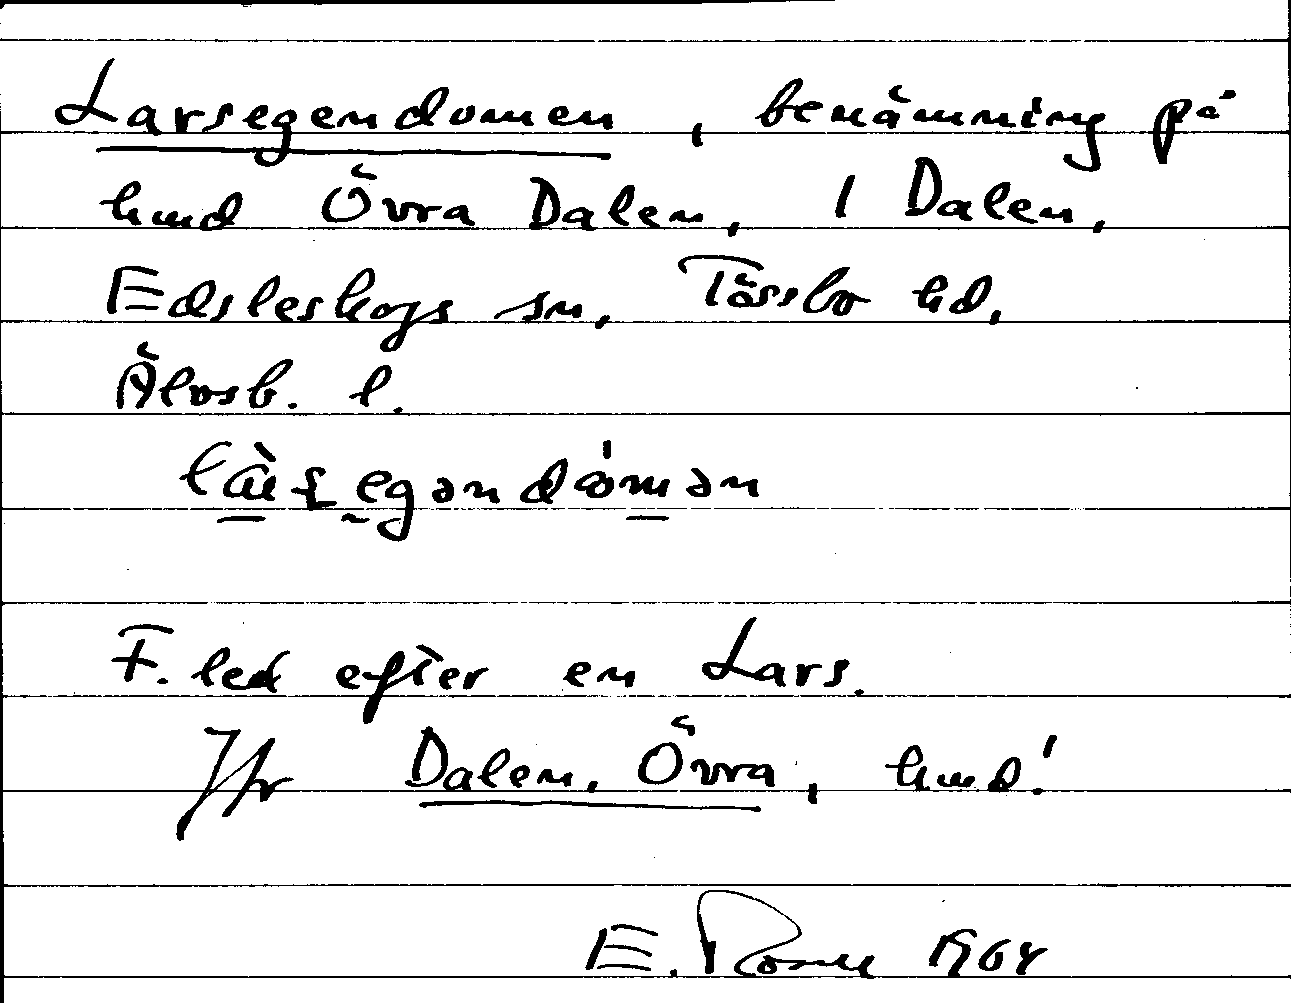 Larsegendomen, benämning på
hmd Övra Dalen, 1 Dalen,
Edsleskogs sn, Tössbo hd,
Älvsb. l.
F. led efter en Lars.
Jfr Dalen, Övra, hmd!
E. 1964